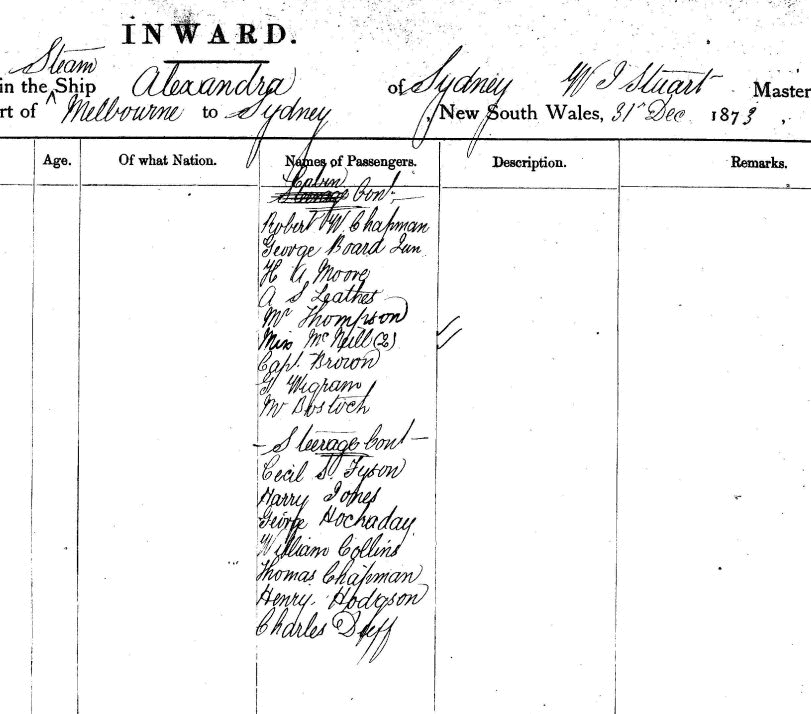 INWARD.
Steam
in the Ship Alexandra of Sydney W J Stuart Master
rt of Melbourne to Sydney, New South Wales, 31st Dec 1873,
Age. Of what Nation. Names of Passengers. Description. Remarks.
Cabin
Steerage Cont
Robert W. Chapman
George Board Jun
H A Moore
A S Leathes
Mr Thompson
Miss McNeill (2)
Capt. Brown
G Wigram
Mr Bostock
- Steerage Cont -
Cecil S. Tyson
Harry Jones
George Hochaday
William Collins
Thomas Chapman
Henry Hodgson
Charles Duff